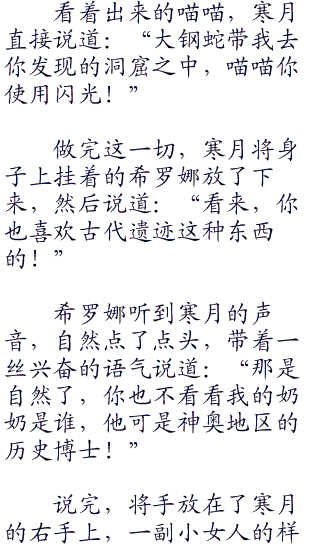 看着出来的喵喵，寒月
直接说道：“大钢蛇带我去
你发现的洞窟之中，喵喵你
使用闪光！”
做完这一切，寒月将身
子上挂着的希罗娜放了下
来，然后说道：“看来，你
也喜欢古代遗迹这种东西
的！”
希罗娜听到寒月的声
音，自然点了点头，带着一
丝兴奋的语气说道：“那是
自然了，你也不看看我的奶
奶是谁，他可是神奥地区的
历史博士！”
说完，将手放在了寒月
的右手上，一副小女人的样